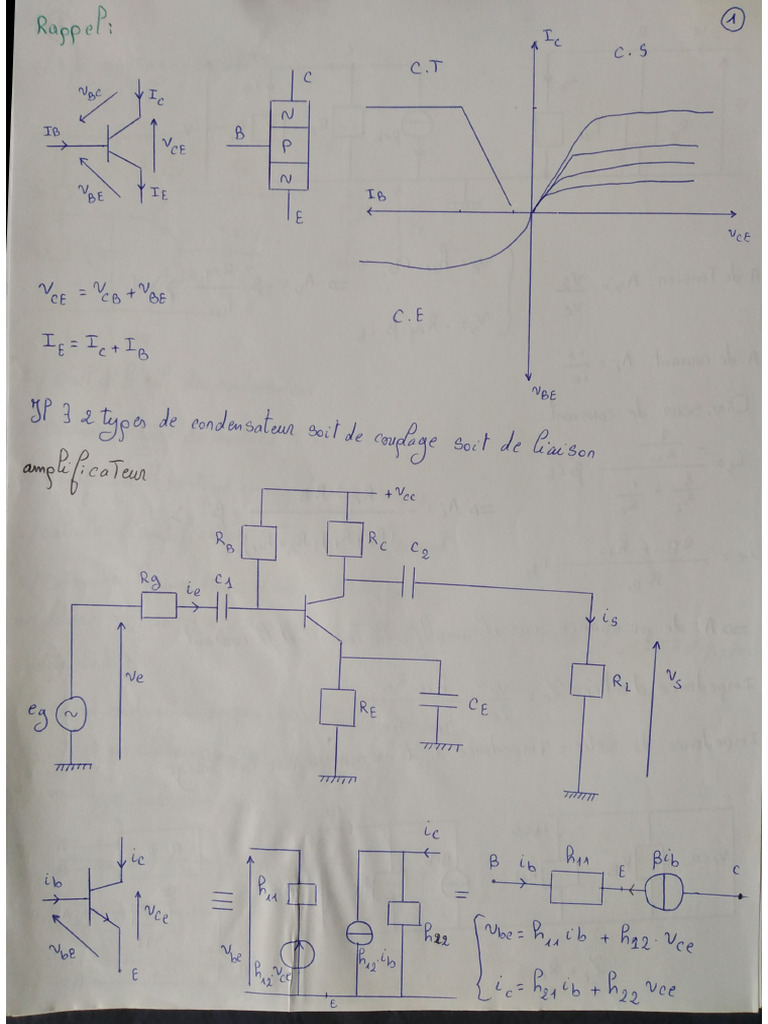 Rappel:
1
v_BC
I_C
IB
v_CE
v_BE
I_E
C
N
B
P
N
E
I_C
C.T
C.S
I_B
v_CE
C.E
v_BE
v_CE = v_CB + v_BE
I_E = I_C + I_B
IP ∃ 2 types de condensateur soit de couplage soit de liaison
amplificateur
+v_cc
R_B
R_C
C_2
Rg
i_e
C1
i_s
ve
eg
R_E
C_E
R_L
v_s
i_c
i_b
v_ce
v_be
E
≡
h_11
v_be
h_12.v_ce
i_c
h_12.i_b
h_22
E
=
B
i_b
h_11
E
βib
C
v_be = h_11 i_b + h_12.v_ce
i_c = h_21 i_b + h_22 v_ce